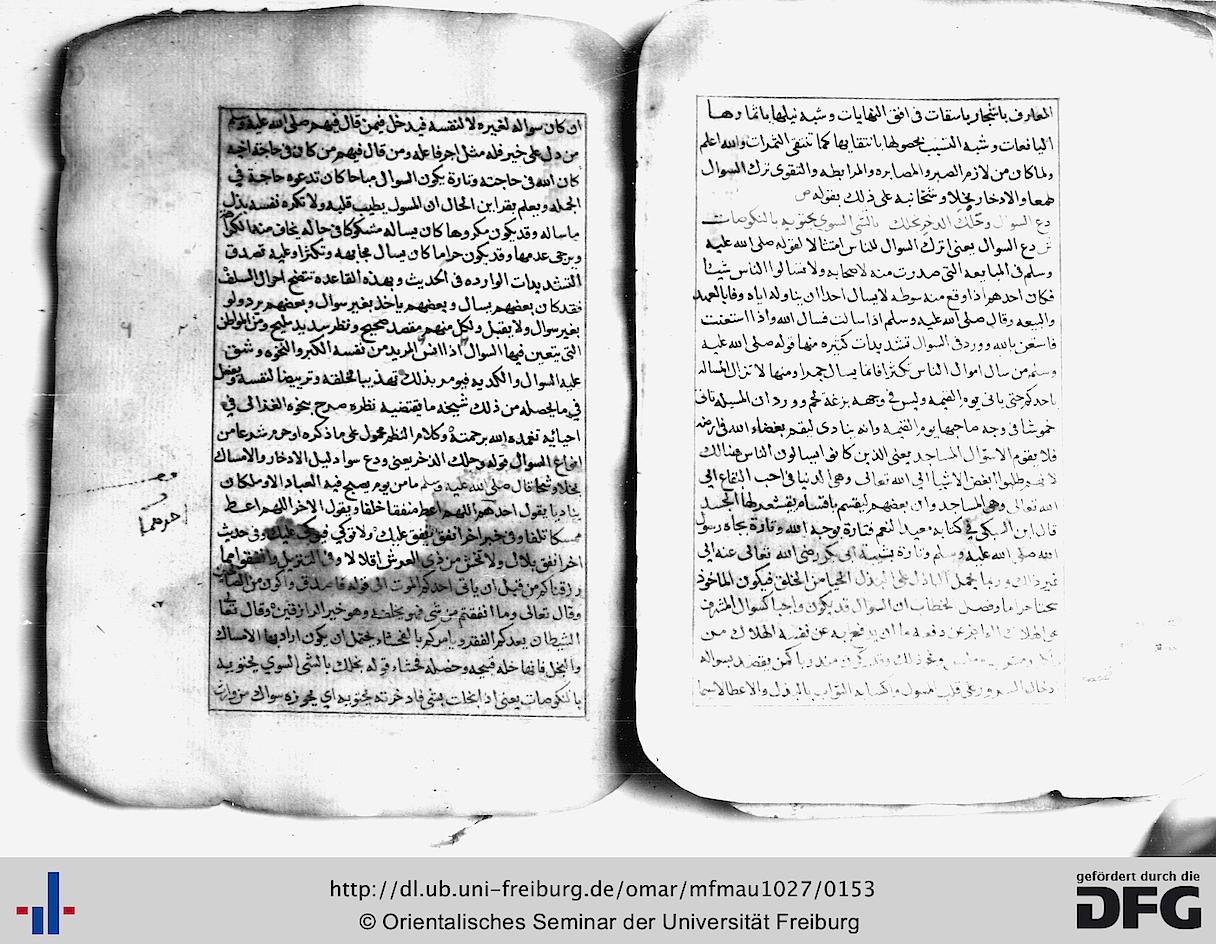 المعارف باشجار باسقات في افق النهايات وشبه نيلها باثمارها
اليانعات وشبه التسبب بحصولها بانتقايها كما تنتقى الثمرات والله اعلم
ولما كان من لازم الصبر والمصابره والمرابطه والتقوى ترك السوال
طمعا والادخار بخلا وشحا نبه على ذلك بقوله ص
دع السوال وخلك الدخر بخلك بالشي السوي يحتويه بالنكوصات
ش دع السوال يعني اترك السوال للناس امتثالا لقوله صلى الله عليه
وسلم في المبايعه التي صدرت منه لاصحابه ولا تسالوا الناس شيئا
فكان احدهم اذا وقع منه سوطه لا يسال احدا ان يناوله اياه وفا بالعهد
والبيعه وقال صلى الله عليه وسلم اذا سالت فسال الله واذا استعنت
فاستعن بالله وورد في السوال تشديدات كثيره منها قوله صلى الله عليه
وسلم من سال اموال الناس تكثرا فانما يسال جمرا ومنها لا تزال المساله
باحدكم حتى ياتي يوم القيمه وليس في وجهه مزعة لحم وورد ان المسيله تاتي
خموشا في وجه صاحبها يوم القيمه وانه ينادي ليقم بغضاء الله في ارضه
فلا يقوم الا سوال المساجد يعني الذين كانوا يسالون الناس هنالك
لانهم طلبوا ابغض الاشيا الى الله تعالى وهي الدنيا في احب البقاع الى
الله تعالى وهي المساجد وان بعضهم ليقسم باقسام يقشعر لها الجسد
قال ابن السبكي في كتابه معيد النعم فتارة بوجه الله وتارة بجاه رسول
الله صلى الله عليه وسلم وتارة بشيبة ابي بكر رضي الله تعالى عنه الى
غير ذلك وربما حمل الباذل على البذل الحيا من الخلق فيكون الماخوذ
سحتا حراما وفصل الخطاب ان السوال قد يكون واجبا كسوال المشرف
على الهلاك العاجز عن دفعه ما ان يدفع به عن نفسه الهلاك من
ونحو ذلك وقد يكون مندوبا كمن يقصد بسواله
ادخال السرور على قلب المسول واكسابه الثواب بالبذل والاعطا لاسيما
ان كان سواله لغيره لا لنفسه فيدخل فيمن قال فيهم صلى الله عليه وسلم
من دل على خير فله مثل اجر فاعله ومن قال فيهم من كان في حاجة اخيه
كان الله في حاجته وتارة يكون السوال مباحا كان تدعوه حاجة في
الجمله ويعلم بقراين الحال ان المسول يطيب قلبه ولا تكره نفسه بذل
ما ساله وقد يكون مكروها كان يساله مشكوكا في حاله يخاف منها الكره
ويرجى عدمها وقد يكون حراما كان يسال مجابهه وتكثرا وعليه تصدق
التشديدات الوارده في الحديث وبهذه القاعده تتضح احوال السلف
فقد كان بعضهم يسال وبعضهم ياخذ بغير سوال وبعضهم يرد ولو
بغير سوال ولا يقبل ولكل منهم مقصد صحيح ونظر سديد مليح ومن المواطن
التي يتعين فيها السوال اذا انس المريد من نفسه الكبر والنخوه وشق
عليه السوال والكديه فيومر بذلك تهذيبا لخلقه وترييضا لنفسه ويفعل
في ما يحصله من ذلك شيخه ما يقتضيه نظره صرح بنحوه الغزالى في
احيائه تغمده الله برحمته وكلام الناظم محمول على ما ذكره او خرج مخرج
انواع السوال قوله وخلك الدخر يعني ودع سوا دليل الادخار والامساك
بخلا وشحا قال صلى الله عليه وسلم ما من يوم يصبح فيه العباد الا وملكان
يناديا يقول احدهم اللهم اعط منفقا خلفا ويقول الاخر اللهم اعط
ممسكا تلفا وفي خبر اخر انفق ينفق عليك ولا توكي فيوكى عليك وفي حديث
اخر انفق بلال ولا تخش من ذي العرش اقلالا وفي التنزيل وانفقوا مما
رزقناكم من قبل ان ياتي احدكم الموت الى قوله فاصدق واكون من الصالحين
وقال تعالى وما انفقتم من شي فهو يخلفه وهو خير الرازقين وقال تعالى
الشيطان يعدكم الفقر ويامركم بالفحشاء يحتمل ان يكون اراد بها الامساك
والبخل فانها خله قبيحه وخصله فحشاء قوله بخلك بالشي السوي يحتويه
بالنكوصات يعني اذ ابخلت بشي فادخرته يحتويه اي يحوزه سواك من وارث
احدهما
http://dl.ub.uni-freiburg.de/omar/mfmau1027/0153
© Orientalisches Seminar der Universität Freiburg
gefördert durch die
DFG